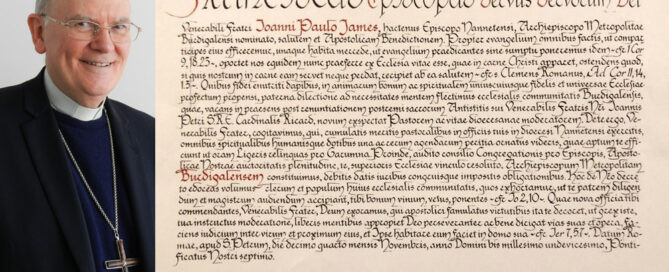 Franciscus Episcopus Servus Servorum Dei
Venerabili Fratri Ioanni Paulo James, hactenus Episcopo Nannetensi, Archiepiscopo Metropolitae
Burdigalensi nominato, salutem et Apostolicam Benedictionem. Propter evangelium omnibus factis, ut compar
ticipes eius efficeremur, imaque habita mercede, ut evangelium praedicantes sine sumptu poneremus idem ~cfr I Cor
9,18.23~, oportet nos equidem nunc praeferre ex Ecclesia vitae esse, quae in carne Christi apparet, ostendens quod,
si quis nostrum in carne eam servet neque perdat, recipiet ab ea salutem ~cfr S. Clemens Romanus, Ad Cor II,14,
1.3~. Quibus fidei enititi dapibus, in animarum bonum ac spiritualem uniuscuiusque fidelis et universae Ecclesiae
profectum propensi, paterna dilectione ad necessitates mentem flectimus ecclesialis communitatis Burdigalensis,
quae, vacans in praesens post renuntiationem postremi sacrorum Antistitis sui Venerabilis Fratris Nri Ioannis
Petri S.R.E. Cardinalis Ricard, novum exspectat Pastorem ac vitae dioecesanae moderatorem. De te ergo, Ve-
nerabilis Frater, cogitavimus, qui, cumulatis meritis pastoralibus in officiis tuis in dioecesi Nannetensi exercitis,
omnibus spiritualibus humanisque dotibus una ac rerum agendarum peritia ornatus videris, quae aptum te effi-
ciunt ad oram Ligeris relinquas pro Garumna. Proinde, audito consilio Congregationis pro Episcopis, Aposto-
licae Nostrae auctoritatis plenitudine, te, superioris Ecclesiae vinculo resoluto, Archiepiscopum Metropolitam
Burdigalensem constituimus, debitis datis iuribus congruisque impositis obligationibus. Hoc de Nro decre-
to edoceas volumus clerum et populum huius ecclesialis communitatis, quos exhortamur, ut te patrem diligen-
dum et magistrum audiendum accipiant, tibi bonum vinum, vetus, ponentes ~cfr Io 2,10~. Quae nova officia tibi
commendantes, Venerabilis Frater, Deum exoramus, qui apostolici famulatus virtutibus te decoret, ut grex iste,
tua instructus moderatione, liberis mentibus appropiet Deo perseveranter, ac bene dirigat vias suas et opera, fa-
ciens iudicium inter virum et proximum eius, et Ipse habitare eum faciet in domo sua ~cfr Ier 7,5-7~. Datum Ro-
mae, apud S. Petrum, die decimo quarto mensis Novembris, anno Domini bis millesimo undevicesimo, Pon-
tificatus Nostri septimo.